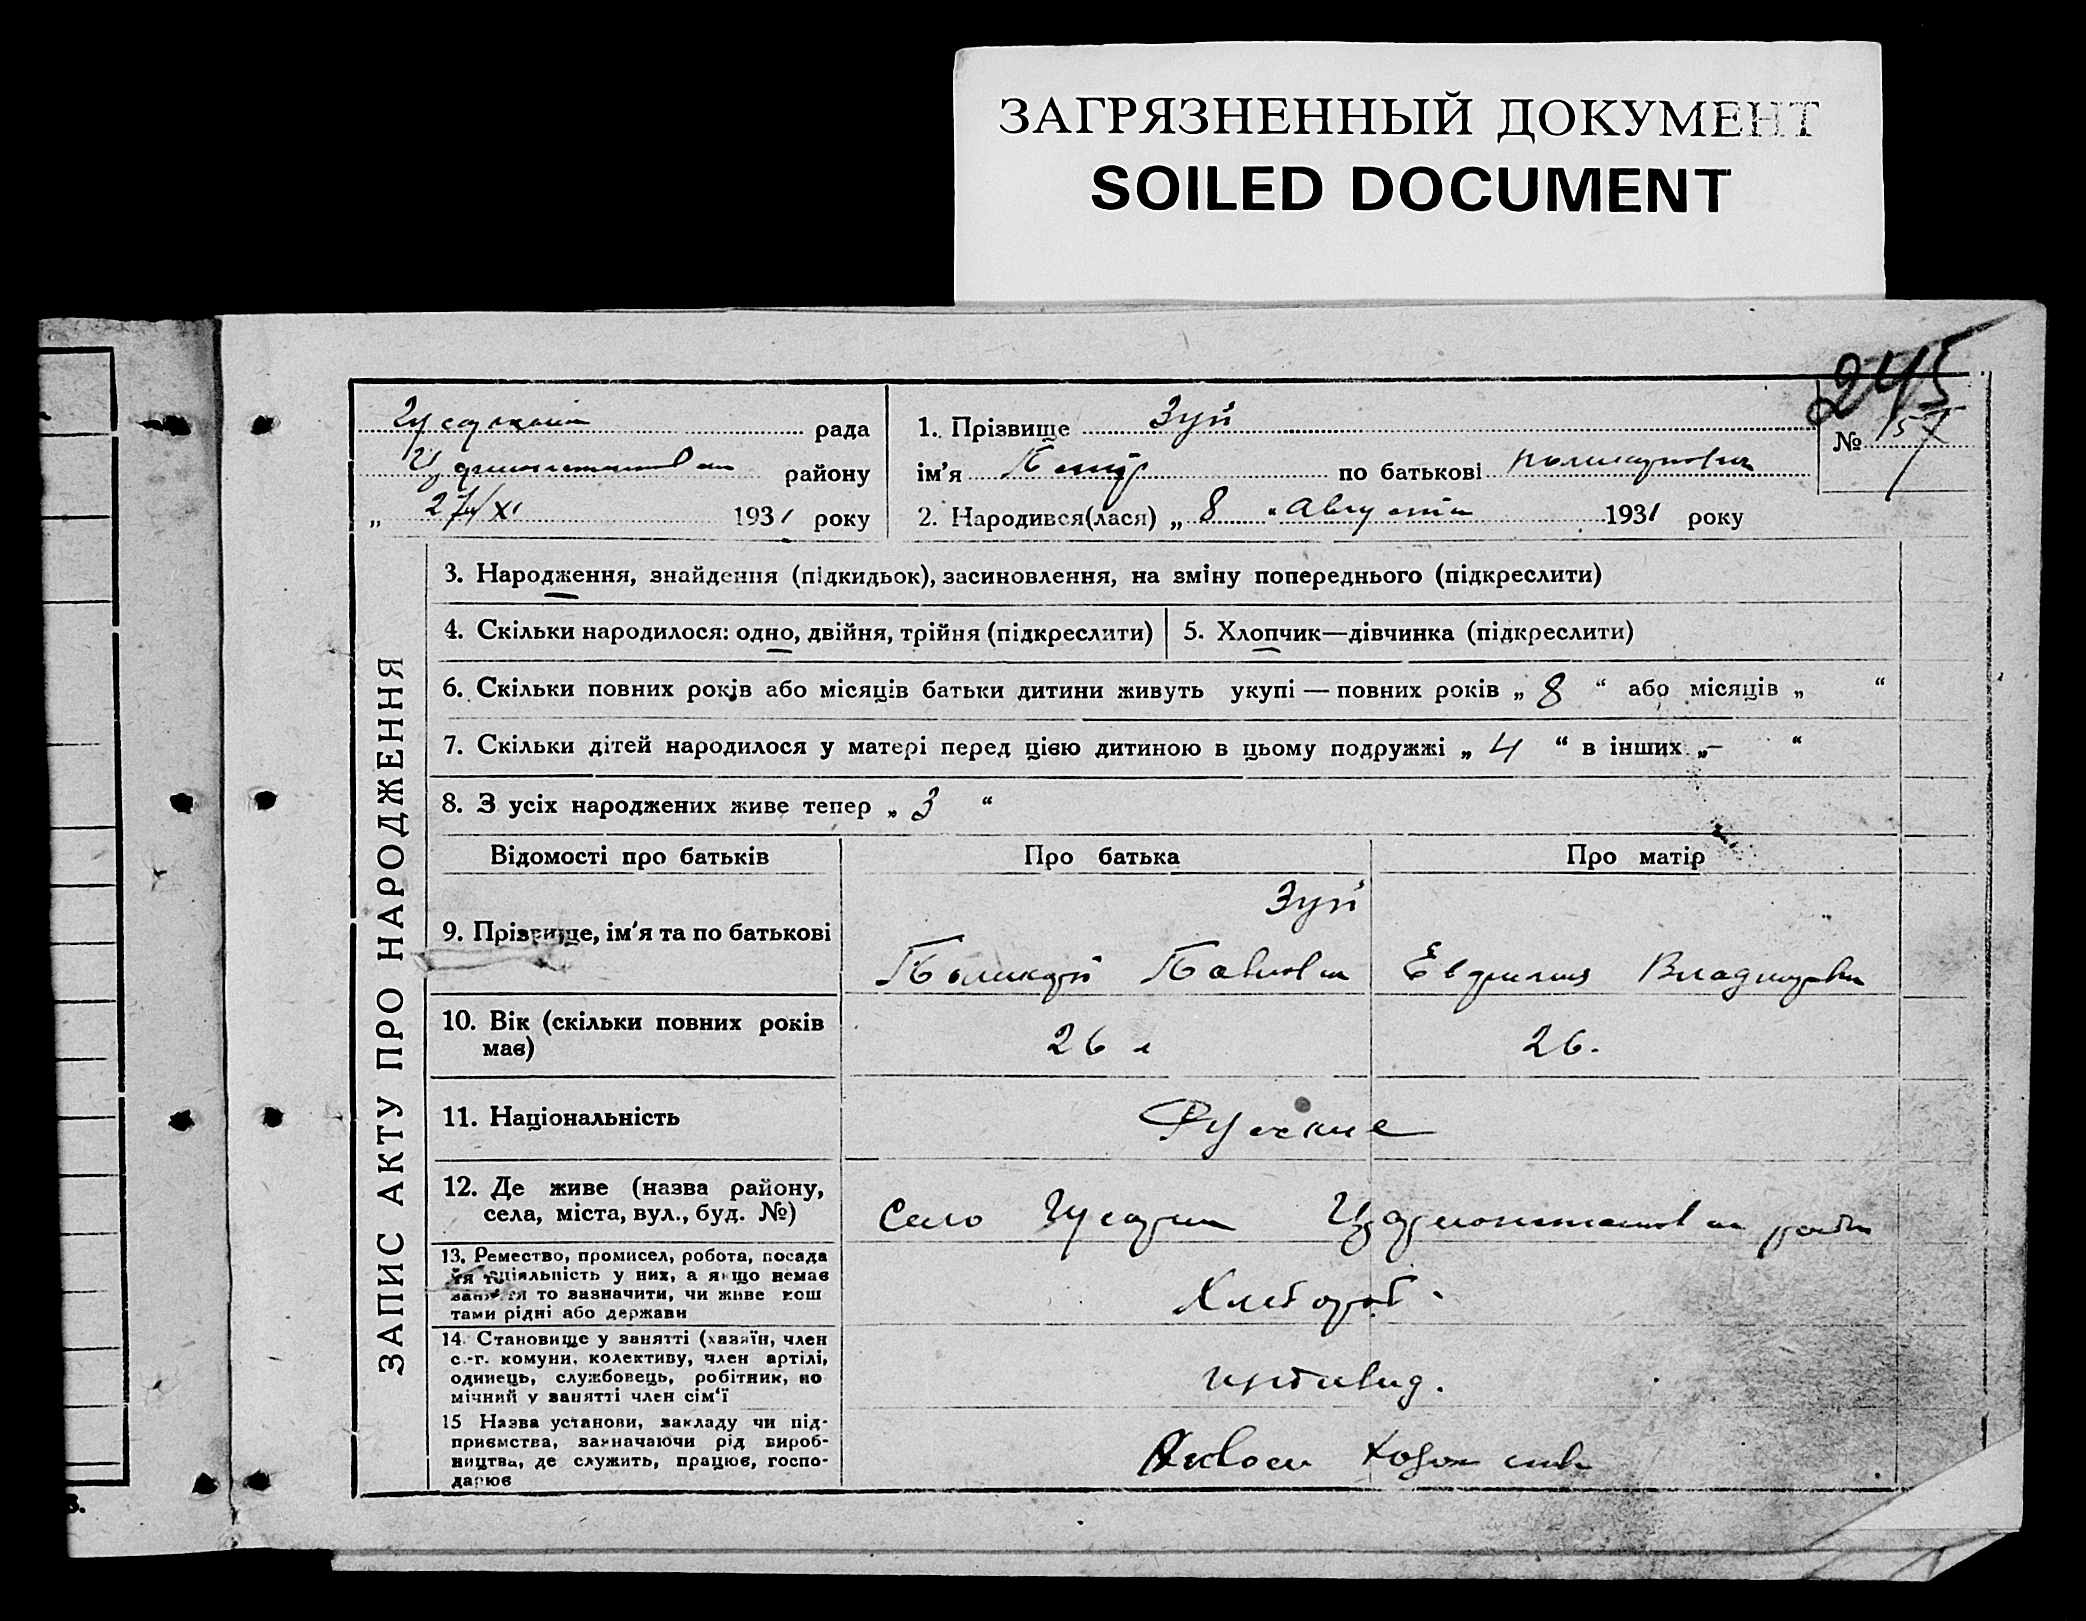 ЗАГРЯЗНЕННЫЙ ДОКУМЕНТ
SOILED DOCUMENT
245
рада
району
„ 27/XI 1931 року
1. Прізвище Зуй
№ 157
ім'я Петр по батькові Поликарпович
2. Народився(лася) „ 8 " Августа 1931 року
ЗАПИС АКТУ ПРО НАРОДЖЕННЯ
3. Народження, знайдення (підкидьок), засиновлення, на зміну попереднього (підкреслити)
4. Скільки народилося: одно, двійня, трійня (підкреслити)
5. Хлопчик—дівчинка (підкреслити)
6. Скільки повних років або місяців батьки дитини живуть укупі — повних років „ 8 “ або місяців „ “
7. Скільки дітей народилося у матері перед цією дитиною в цьому подружжі „ 4 “ в інших „ – “
8. З усіх народжених живе тепер „ 3 “
Відомості про батьків Про батька Про матір
9. Прізвище, ім'я та по батькові
Зуй
Поликарп Павлович
10. Вік (скільки повних років
має)
26 л 26.
11. Національність
Русские
12. Де живе (назва району,
села, міста, вул., буд. №)
Село
13. Ремество, промисел, робота, посада
чи спіяльність у них, а якщо немає
заняття то зазначити, чи живе кош
тами рідні або держави
Хлебороб.
14. Становище у занятті (хазяїн, член
с.-г. комуни, колективу, член артілі,
одинець, службовець, робітник, по
мічний у занятті член сім'ї
15 Назва установи, закладу чи під-
приємства, зазначаючи рід вироб-
ництва, де служить, працює, госпо-
дарює